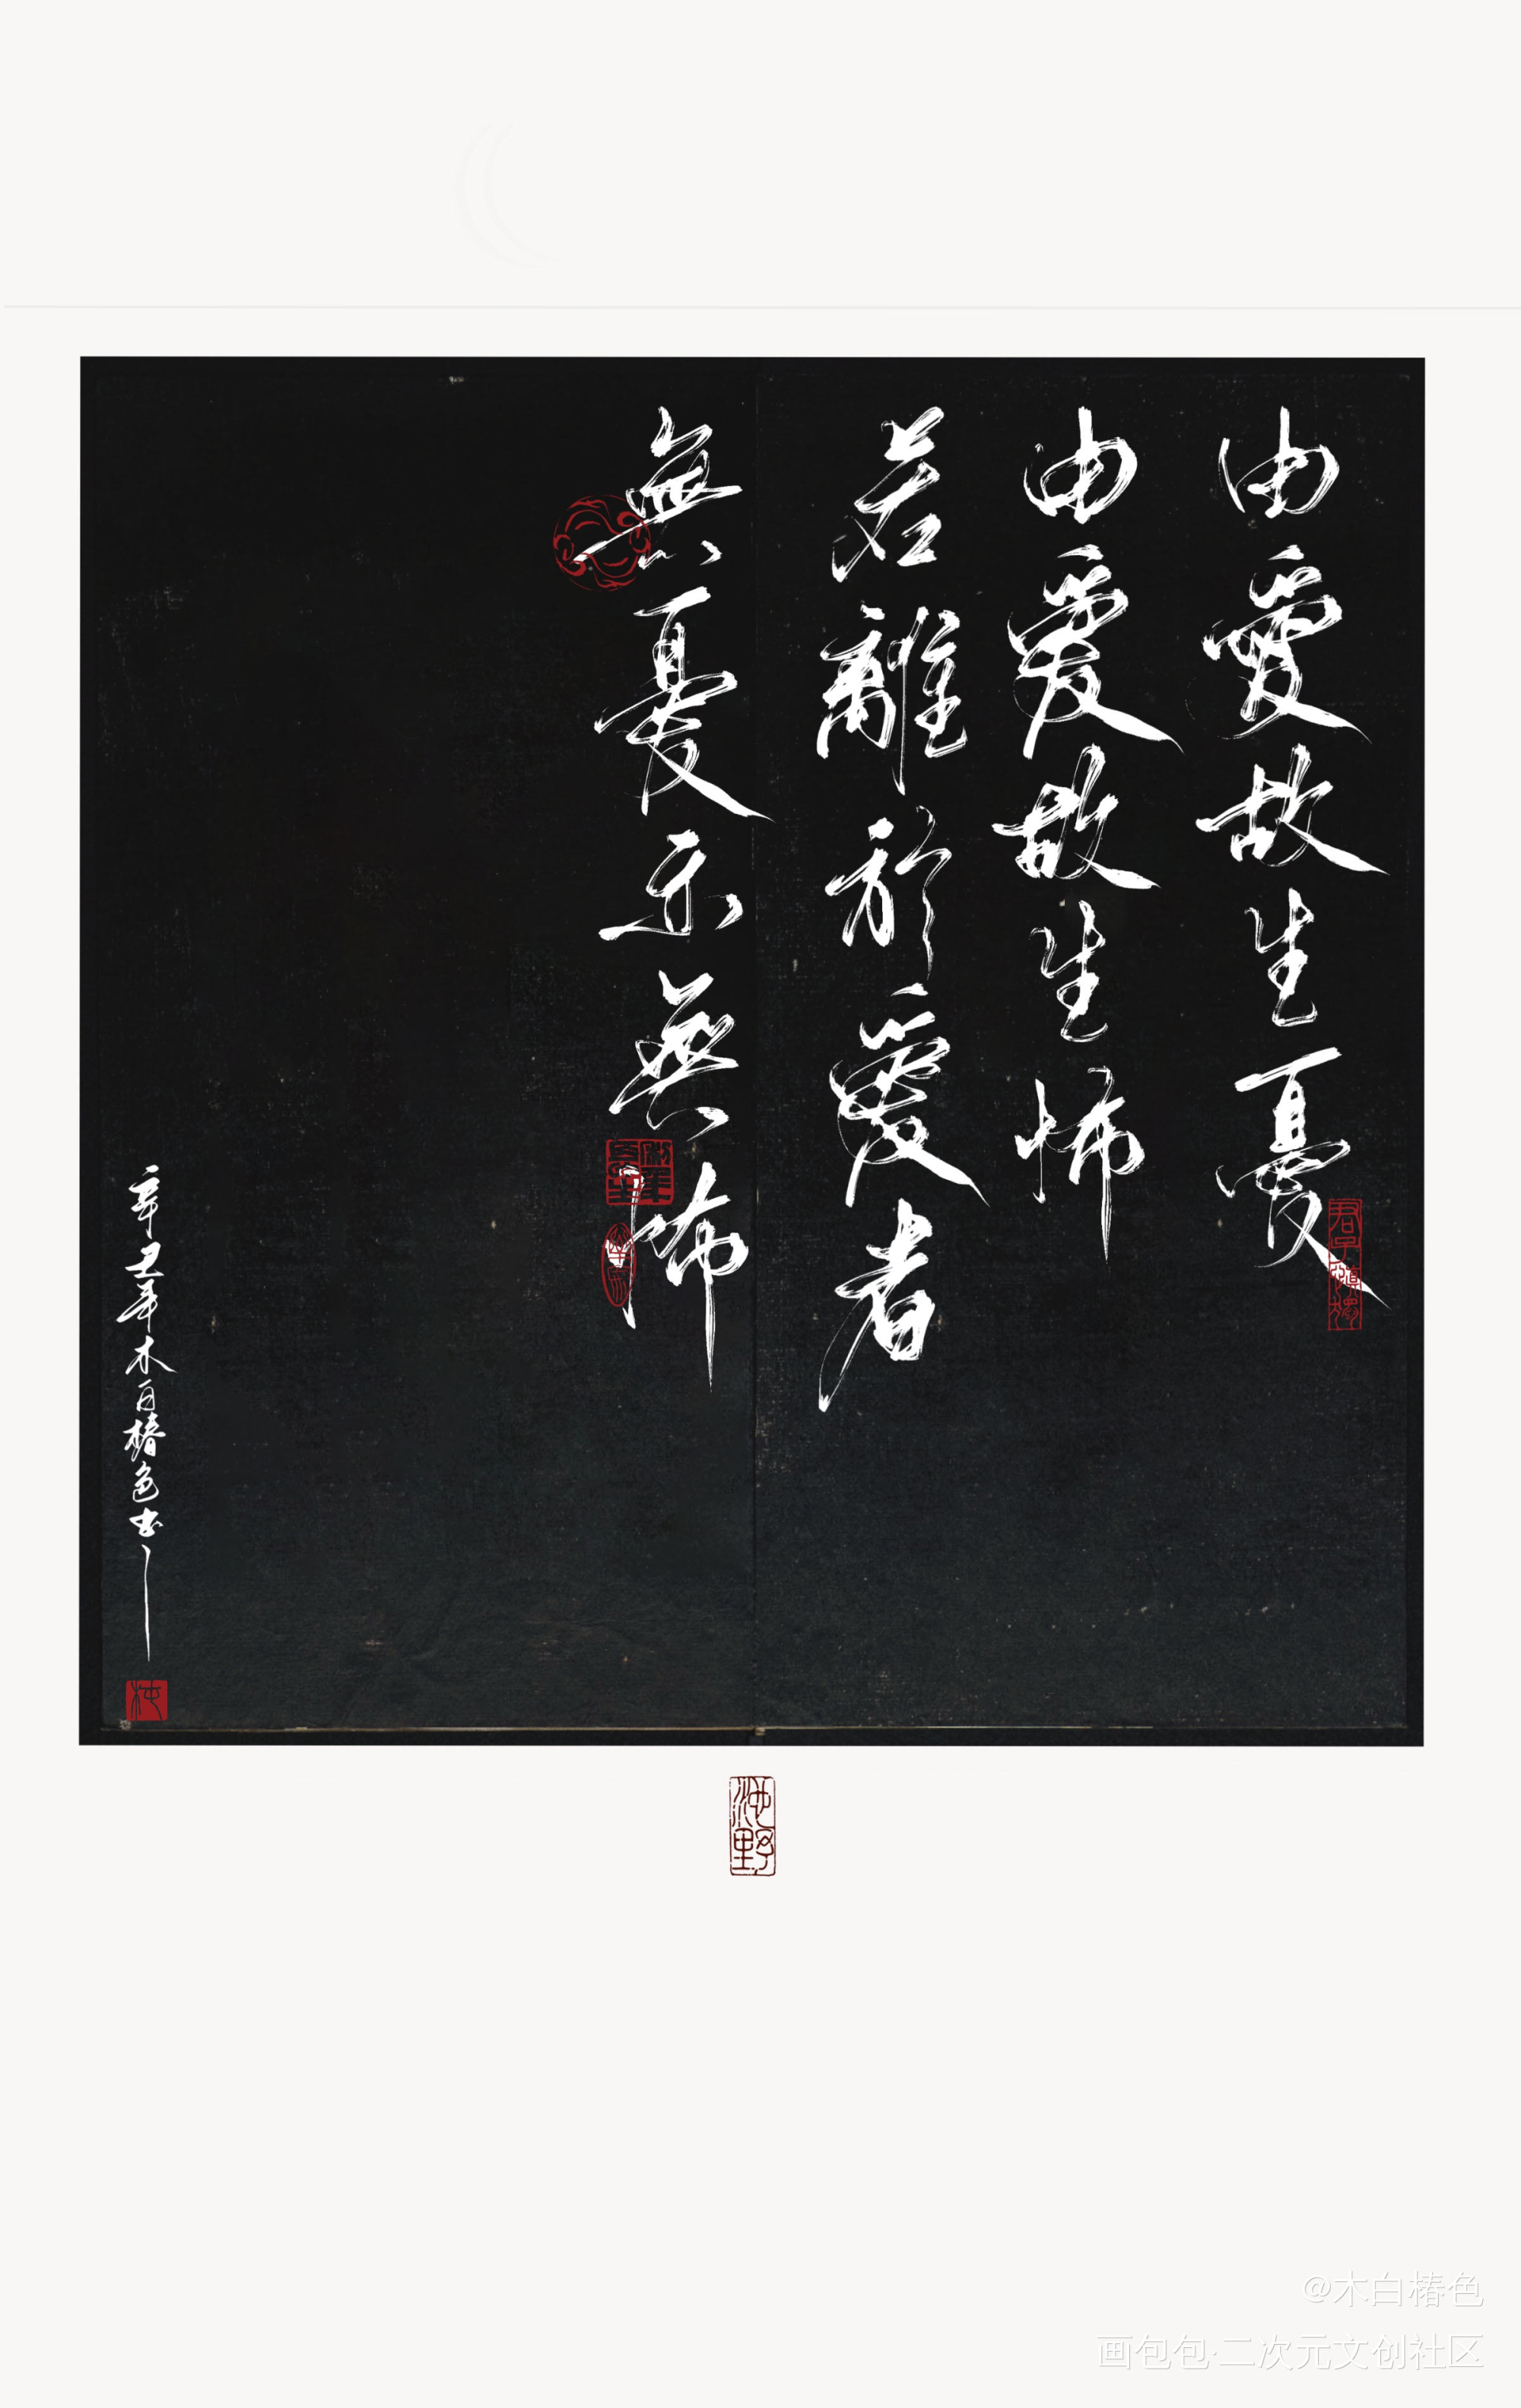 由愛故生憂
由愛故生怖
若離於愛者
無憂亦無怖
辛丑年木白椿色书
君子慎獨
池野
@木白椿色
画包包·二次元文创社区